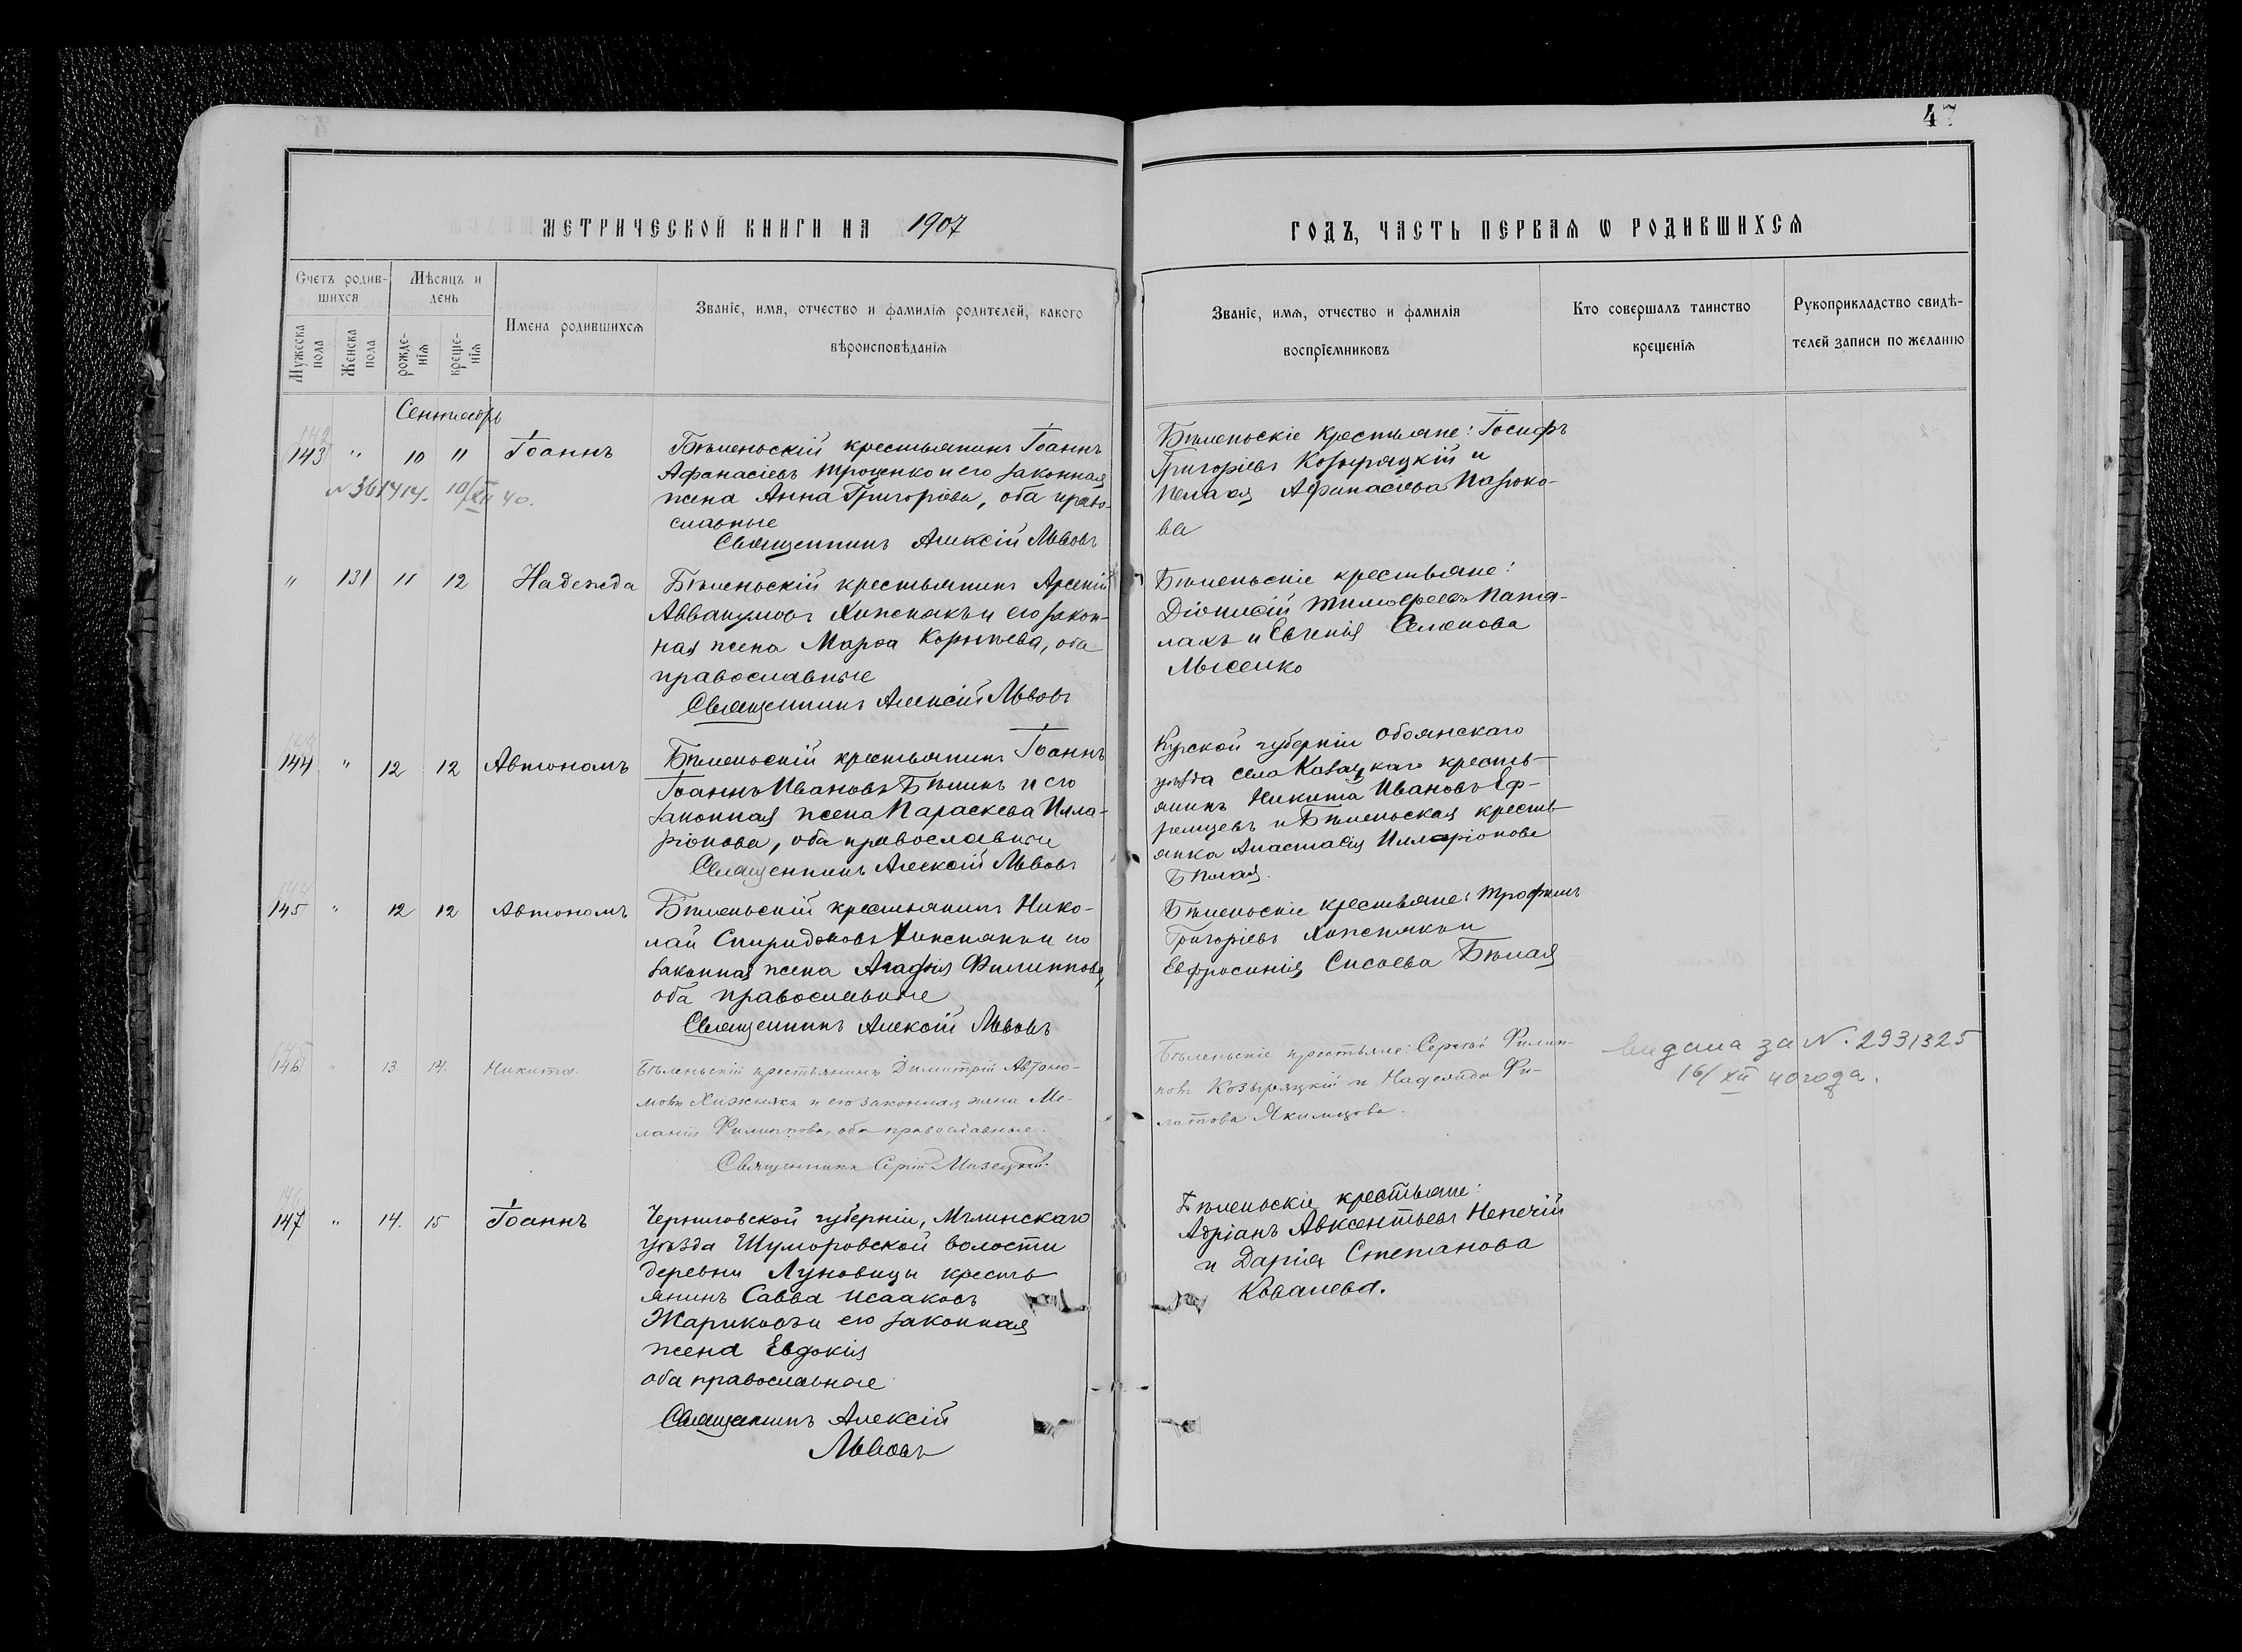 47
МЕТРИЧЕСКОЙ КНИГИ НА 1907
ГОДЪ, ЧАСТЬ ПЕРВАѦ Ѡ РОДИВШИХСѦ
Счетъ родив-
шихся
Мѣсяцъ и
день
Мужеска
пола
Женска
пола
рожде-
нія
креще-
нія
Имена родившихся
Званіе, имя, отчество и фамилія родителей, какого
вѣроисповѣданія
Званіе, имя, отчество и фамилія
воспріемниковъ
Кто совершалъ таинство
крещенія
Рукоприкладство свидѣ-
телей записи по желанію
Сентябрь
143 " 10 11 Іоаннъ
№ 361414. 10/XII 40.
Бѣленьскій крестьянинъ Іоаннъ
Афанасіевъ Троценко и его законная
жена Анна Григоріева, оба право-
славные
Священникъ Алексій Львовъ
Бѣленьскіе крестьяне: Іосифъ
Григоріевъ Козыряцкій и
Афанасіева
ва
" 131 11 12 Надежда
Бѣленьскій крестьянинъ Арсеній
Аввакумовъ Хижнякъ и его закон-
ная жена Марѳа Корнѣева, оба
православные
Священникъ Алексій Львовъ
Бѣленьскіе крестьяне:
Діонисій Тимоѳеевъ Пата-
лахъ и Евгенія Семенова
Лысенко
144 " 12 12 Автономъ
Бѣленьскій крестьянинъ Іоаннъ
Іоаннъ Ивановъ Бѣликъ и его
законная жена Параскева Илла-
ріонова, оба православные
Священникъ Алексій Львовъ
Курской губерніи Обоянскаго
уѣзда села Казацкаго кресть-
янинъ Никита Ивановъ Еф-
ремцевъ и Бѣленьская кресть-
янка Анастасія Илларіонова
Бѣлая.
145 " 12 12 Автономъ
Бѣленьскій крестьянинъ Нико-
лай Спиридоновъ Хижнякъ и его
законная жена Агафія Филиппова,
оба православные
Священникъ Алексій Львовъ
Бѣленьскіе крестьяне: Трофимъ
Григоріевъ Хижнякъ и
Евфросинія Сисоева Бѣлая
146 " 13 14. Никита.
Бѣленьскій крестьянинъ Димитрій Автоно-
мовъ Хижнякъ и его законная жена Ме-
ланія Филиппова, оба православные.
Священникъ Сергій Мизецкій.
Бѣленьскіе крестьяне: Сергѣй Филип-
повъ Козыряцкій и Надежда Фи-
латова Якимцова.
видана за N. 2931325
16/XII 40 года.
147 " 14. 15 Іоаннъ
Черниговской губерніи, Мглинскаго
уѣзда Шуморовской волости
деревни Луновицы кресть
янинъ Савва Исааковъ
Жариковъ и его законная
жена Евдокія
оба православные
Священникъ Алексій
Львовъ
Бѣленьскіе крестьяне:
Адріанъ Авксентьевъ Непечій
и Дарія Степанова
Ковалева.